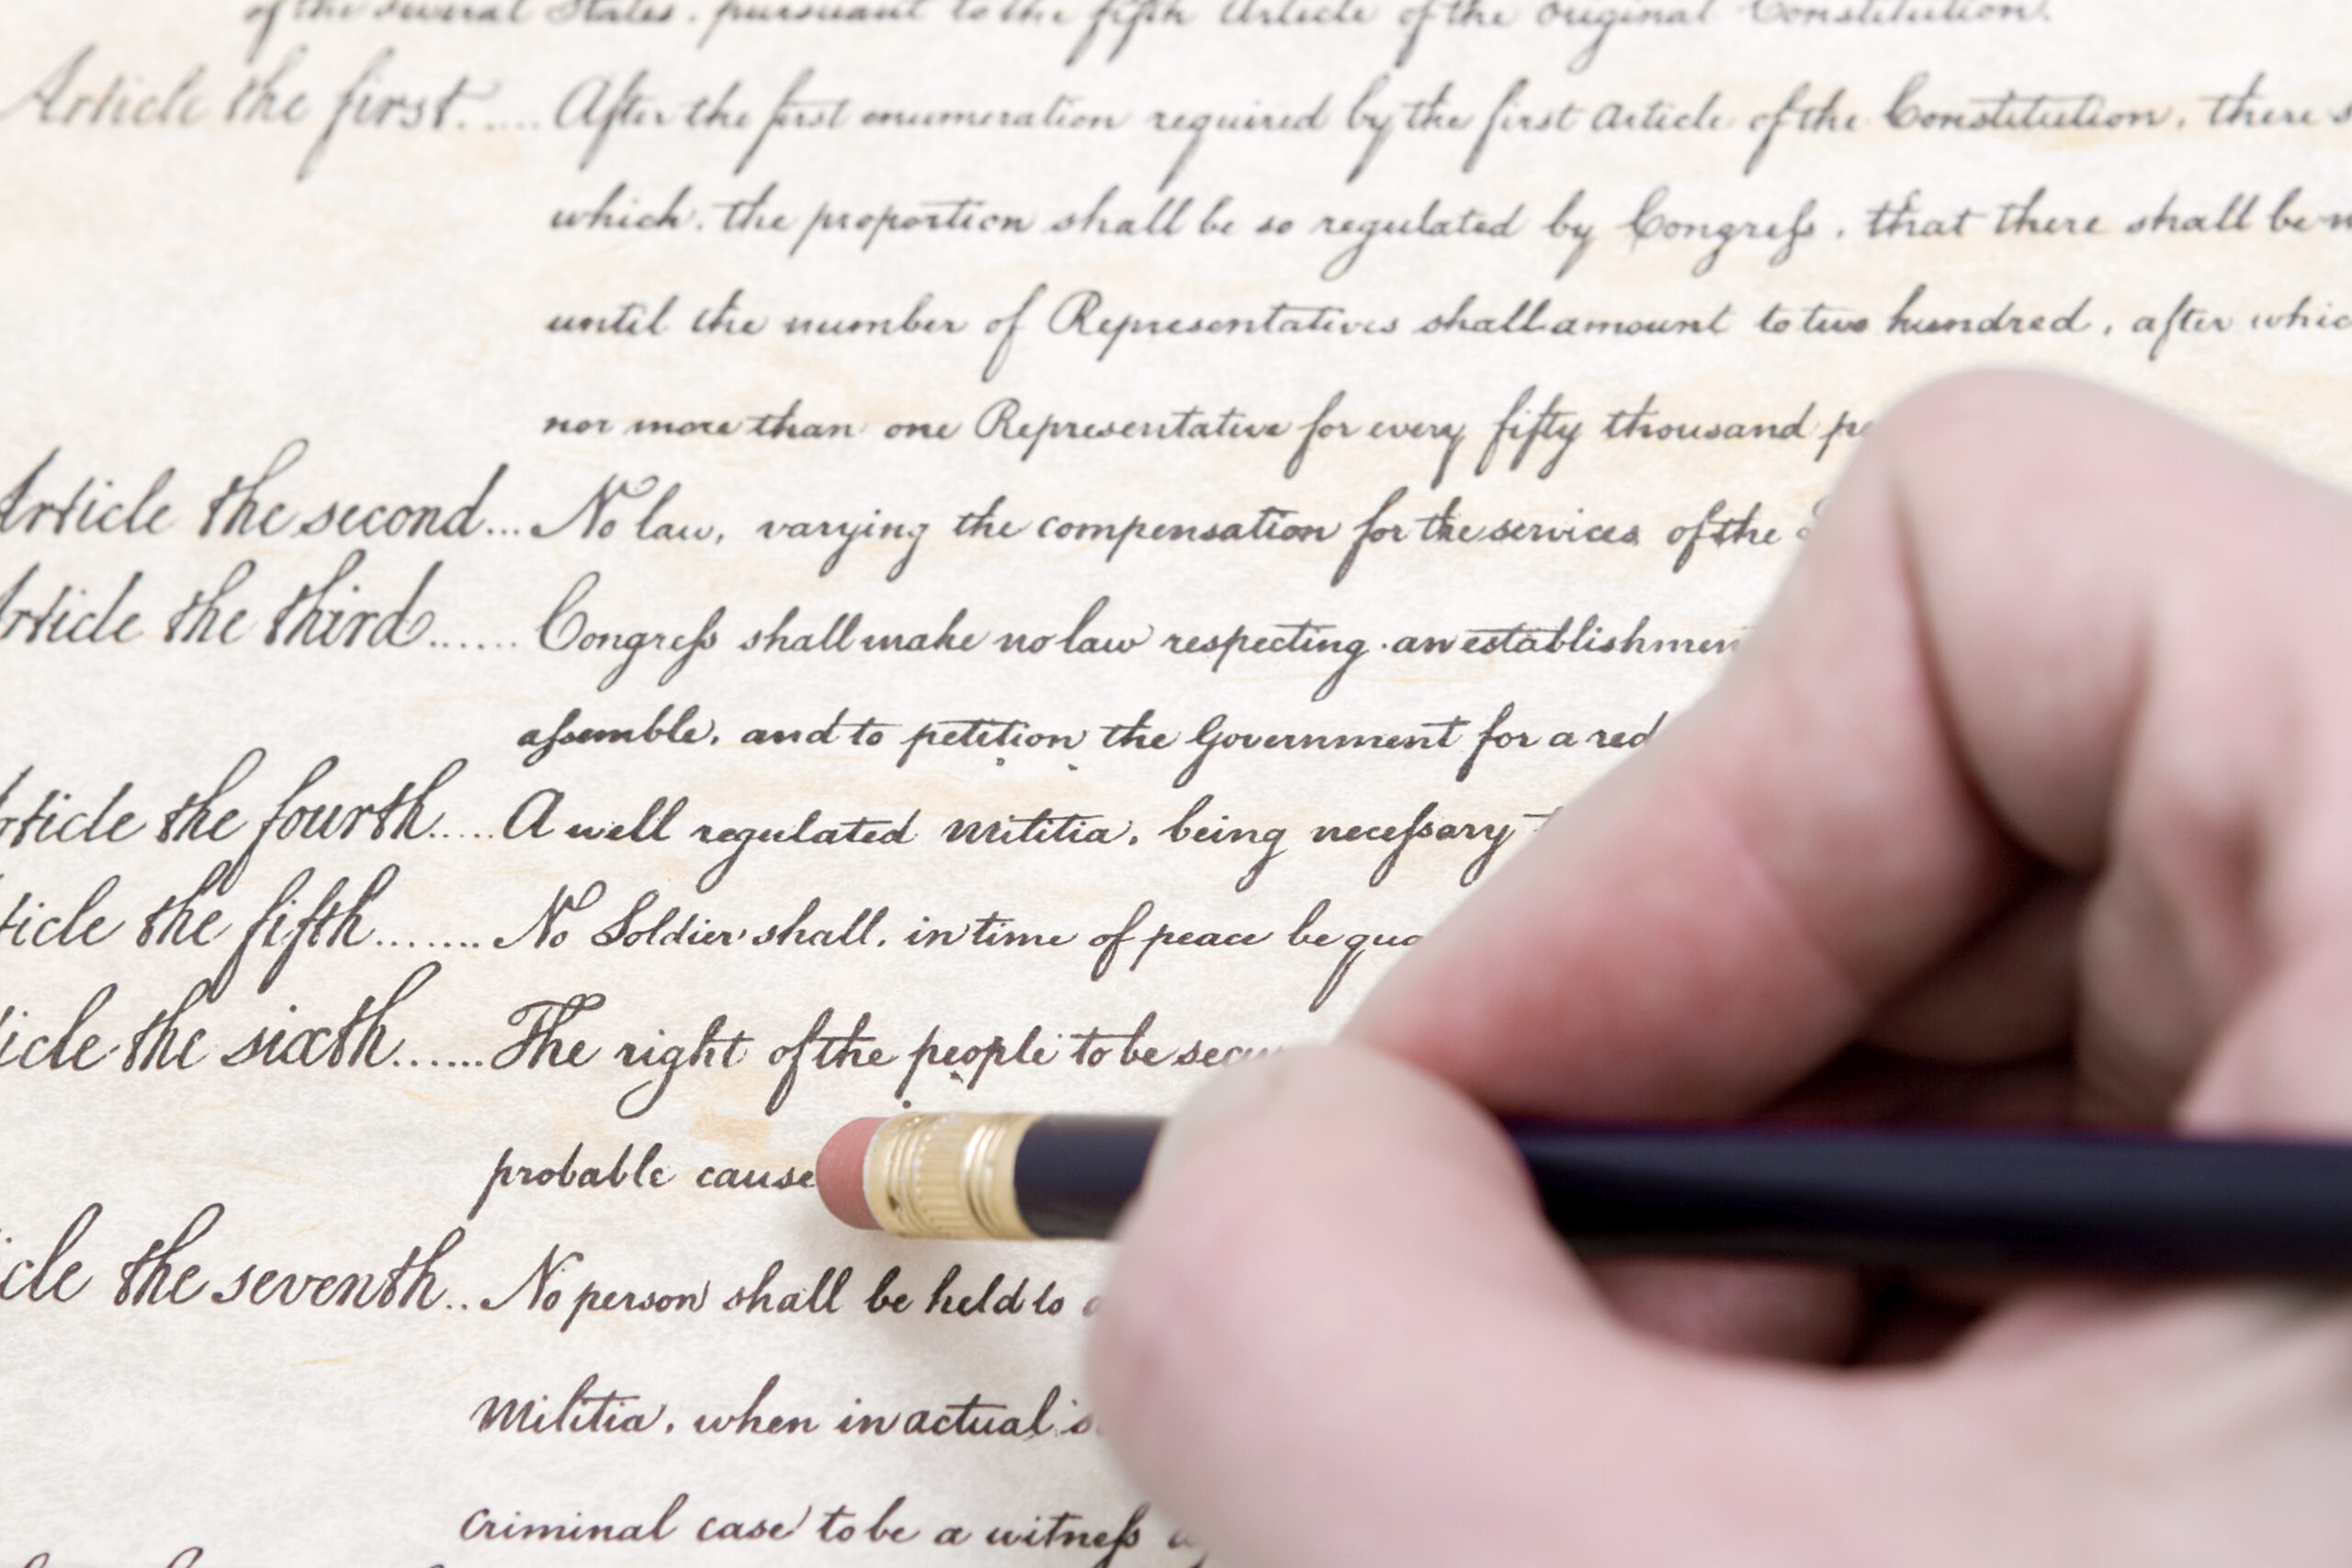 of the several States, pursuant to the fifth Article of the original Constitution.
Article the first...... After the first enumeration required by the first Article of the Constitution, there
which, the proportion shall be so regulated by Congreſs, that there shall be
until the number of Representatives shall amount to two hundred, after whic
nor more than one Representative for every fifty thousand pe
Article the second... No law, varying the compensation for the services of the
Article the third...... Congreſs shall make no law respecting an establishmen
aſsemble, and to petition the Government for a red
rticle the fourth..... A well regulated Militia, being neceſsary t
ticle the fifth....... No Soldier shall, in time of peace be qua
icle the sixth...... The right of the people to be secu
probable cause
cle the seventh.. No person shall be held to a
Militia, when in actual s
criminal case to be a witneſs ag